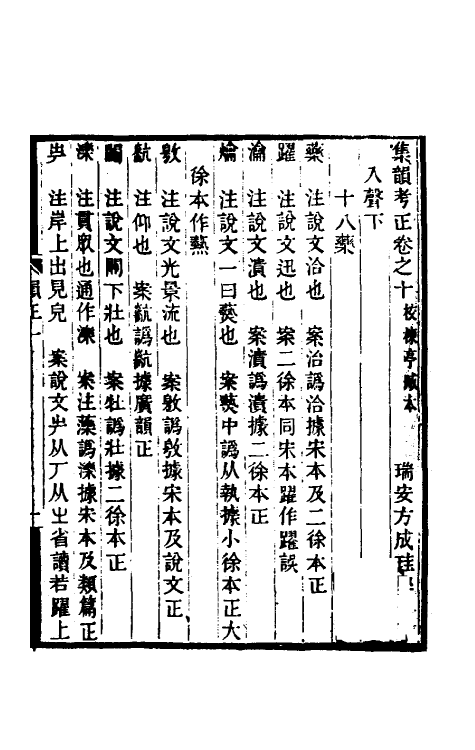 集韻考正卷之十 校楝亭藏本 瑞安方成珪
入聲下
十八藥
藥 注說文治也 案治譌洽據宋本及二徐本正
躍 注說文迅也 案二徐本同宋本躍作躍誤
瀹 注說文漬也 案瀆譌漬據二徐本正
爚 注說文一曰爇也 案爇中譌从執據小徐本正大
徐本作爇
敫 注說文光景流也 案敫譌敫據宋本及說文正
注仰也 案譌據廣韻正
注說文關下壯也 案牡譌壯據二徐本正
濼 注貫眾也通作濼 案注藻譌濼據宋本及類篇正
注岸上出見皃 案說文从厂从㞢省讀若躍上
韻正